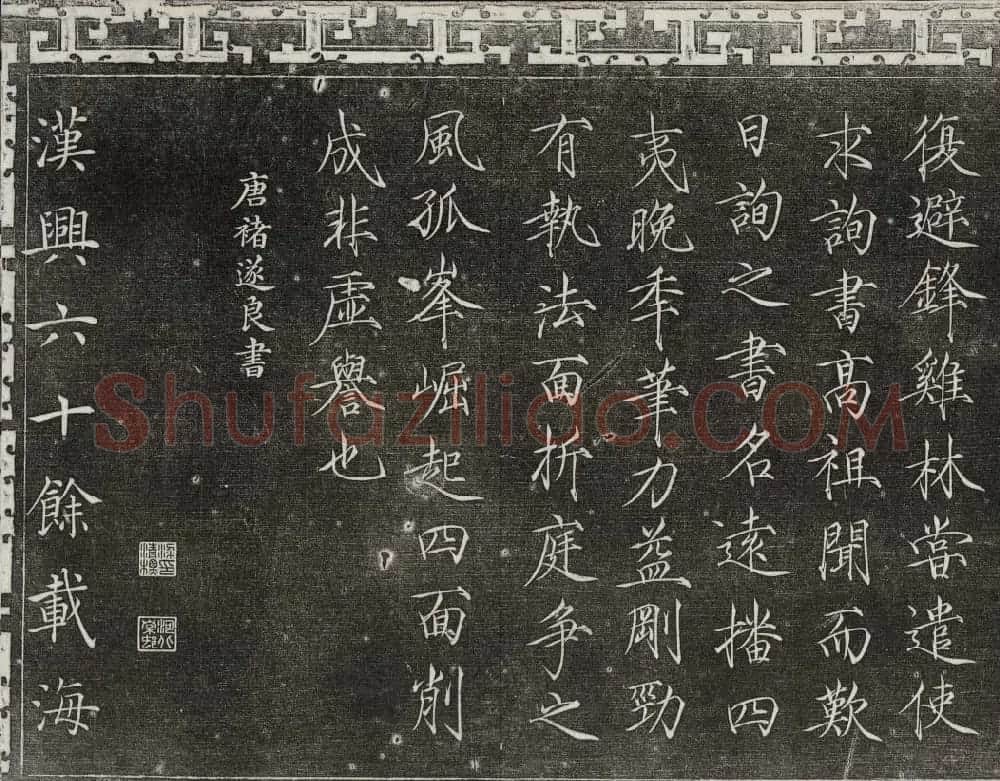 復避鋒雞林嘗遣使
求詢書高祖聞而歎
曰詢之書名遠播四
夷晚年筆力益剛勁
有執法面折庭爭之
風孤峯崛起四面削
成非虛譽也
唐褚遂良書
漢興六十餘載海
Shufaziliao.COM